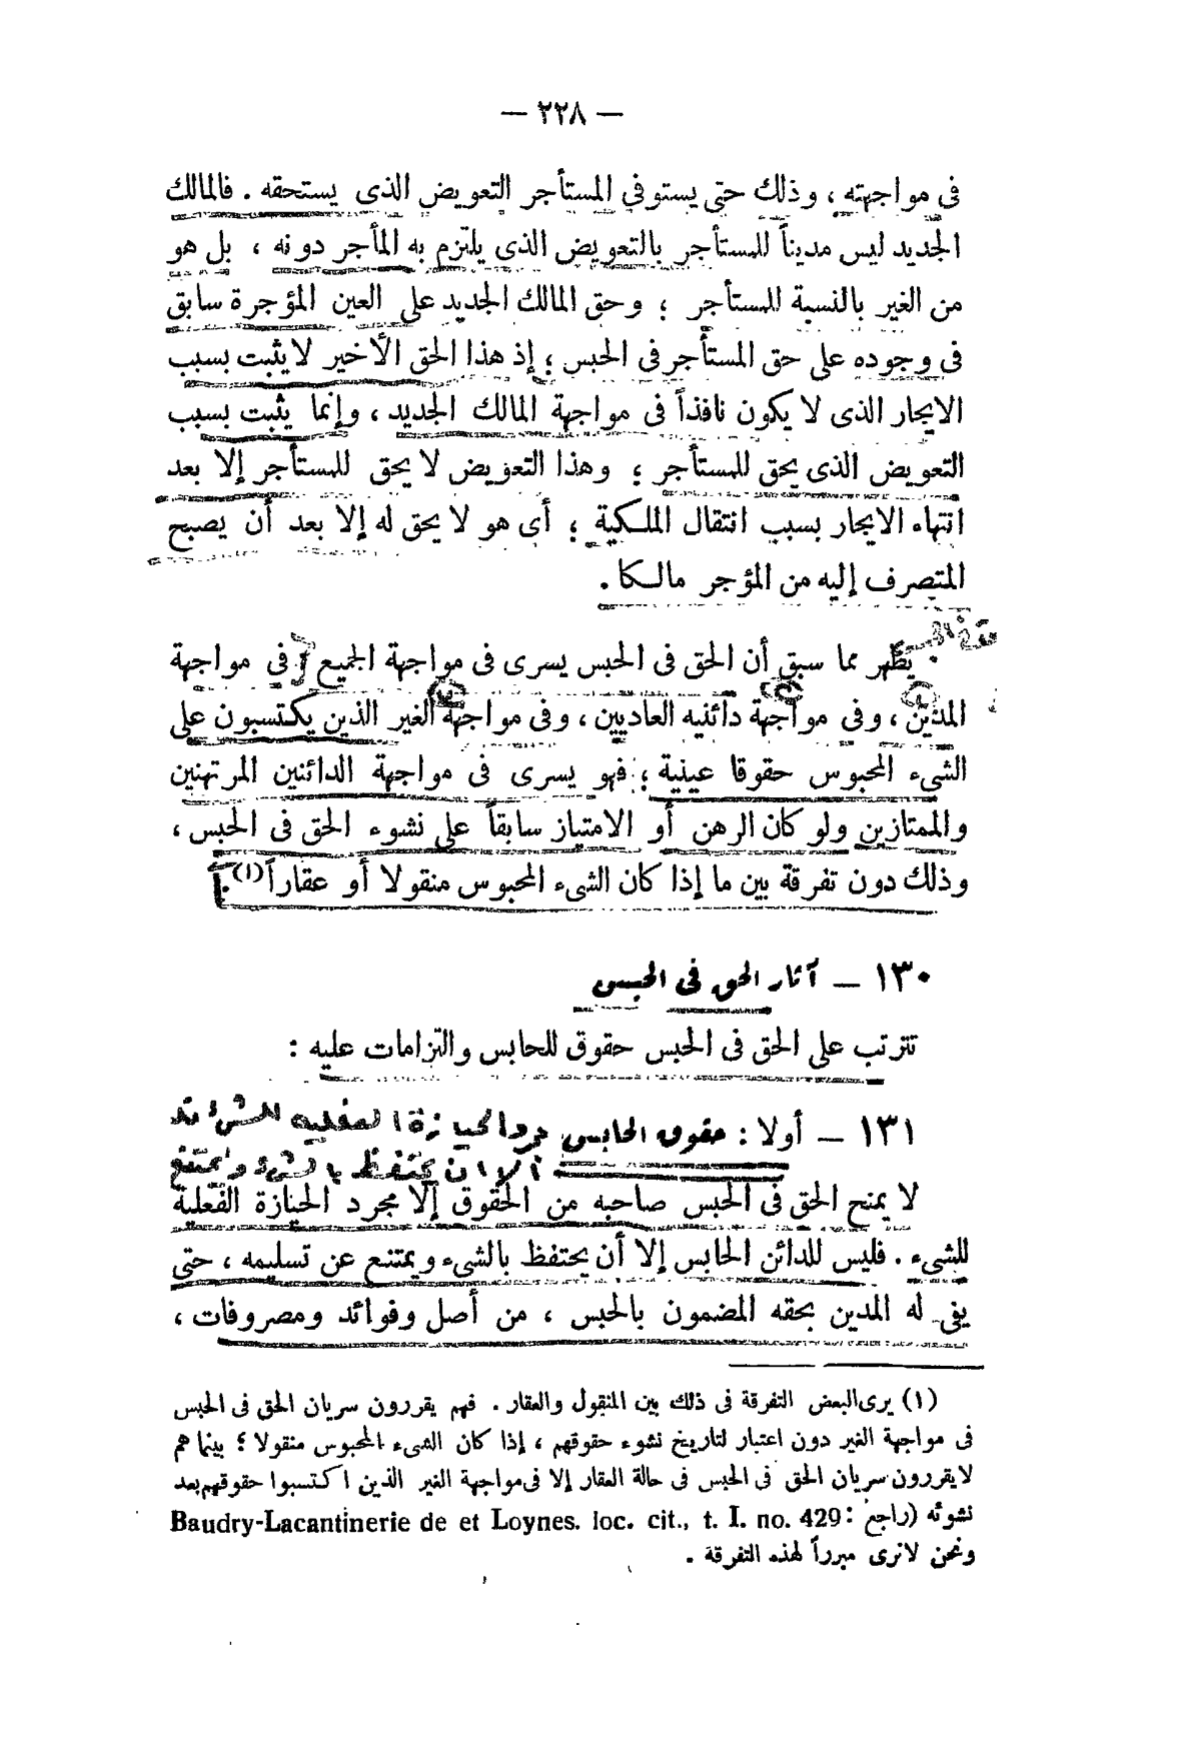 — ٢٢٨ —
فى مواجهته ، وذلك حتى يستوفى المستأجر التعويض الذى يستحقه . فالمالك
الجديد ليس مديناً للمستأجر بالتعويض الذى يلتزم به المأجر دونه ، بل هو
من الغير بالنسبة للمستأجر ؛ وحق المالك الجديد على العين المؤجرة سابق
فى وجوده على حق المستأجر فى الحبس ؛ إذ هذا الحق الأخير لا يثبت بسبب
الايجار الذى لا يكون نافذاً فى مواجهة المالك الجديد ، وإنما يثبت بسبب
التعويض الذى يحق للمستأجر ؛ وهذا التعويض لا يحق للمستأجر إلا بعد
انتهاء الايجار بسبب انتقال الملكية ؛ أى هو لا يحق له إلا بعد أن يصبح
المتصرف إليه من المؤجر مالكا .
يظهر مما سبق أن الحق فى الحبس يسرى فى مواجهة الجميع : فى مواجهة
المدين ، وفى مواجهة دائنيه العاديين ، وفى مواجهة الغير الذين يكتسبون على
الشىء المحبوس حقوقا عينية ؛ فهو يسرى فى مواجهة الدائنين المرتهنين
والممتازين ولو كان الرهن أو الامتياز سابقاً على نشوء الحق فى الحبس ،
وذلك دون تفرقة بين ما إذا كان الشىء المحبوس منقولا أو عقاراً (١) .
١٣٠ — آثار الحق فى الحبس
تترتب على الحق فى الحبس حقوق للحابس والتزامات عليه :
١٣١ — أولا : حقوق الحابس مرد الحيازة الفعليه للشئ
الا ان يحتفظ بالشئ ويمتنع
لا يمنح الحق فى الحبس صاحبه من الحقوق إلا مجرد الحيازة الفعلية
للشىء . فليس للدائن الحابس إلا أن يحتفظ بالشىء ويمتنع عن تسليمه ، حتى
يفى له المدين بحقه المضمون بالحبس ، من أصل وفوائد ومصروفات ،
(١) يرى البعض التفرقة فى ذلك بين المنقول والعقار . فهم يقررون سريان الحق فى الحبس
فى مواجهة الغير دون اعتبار لتاريخ نشوء حقوقهم ، إذا كان الشىء المحبوس منقولا ؛ بينما هم
لا يقررون سريان الحق فى الحبس فى حالة العقار إلا فى مواجهة الغير الذين اكتسبوا حقوقهم بعد
نشوئه (راجع : Baudry-Lacantinerie de et Loynes. loc. cit., t. I. no. 429
ونحن لا نرى مبرراً لهذه التفرقة .